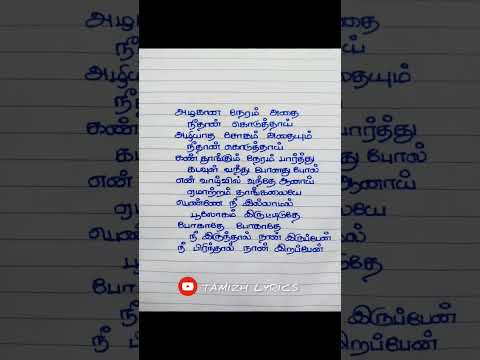 அழகான நேரம் அதை
நீதான் கொடுத்தாய்
அழியாத சோகம் அதையும்
நீதான் கொடுத்தாய்
கண் தூங்கும் நேரம் பார்த்து
கடவுள் வந்து போனது போல்
என் வாழ்வில் வந்தே ஆனாய்
ஏமாற்றம் தாங்கலையே
பெண்ணே நீ இல்லாமல்
பூலோகம் இருட்டிடுதே
போகாதே போகாதே
நீ இருந்தால் நான் இருப்பேன்
நீ பிரிந்தால் நான் இறப்பேன்
TAMIZH LYRICS